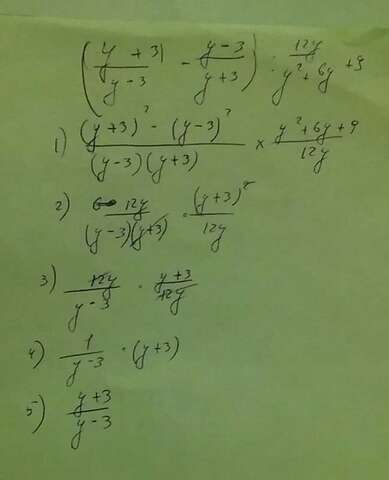 (y + 3 / y - 3 - y - 3 / y + 3) : 12y / y² + 6y + 9
1) (y + 3)² - (y - 3)² / (y - 3)(y + 3) × y² + 6y + 9 / 12y
2) 12y / (y - 3)(y + 3) · (y + 3)² / 12y
3) 12y / y - 3 · y + 3 / 12y
4) 1 / y - 3 · (y + 3)
5) y + 3 / y - 3